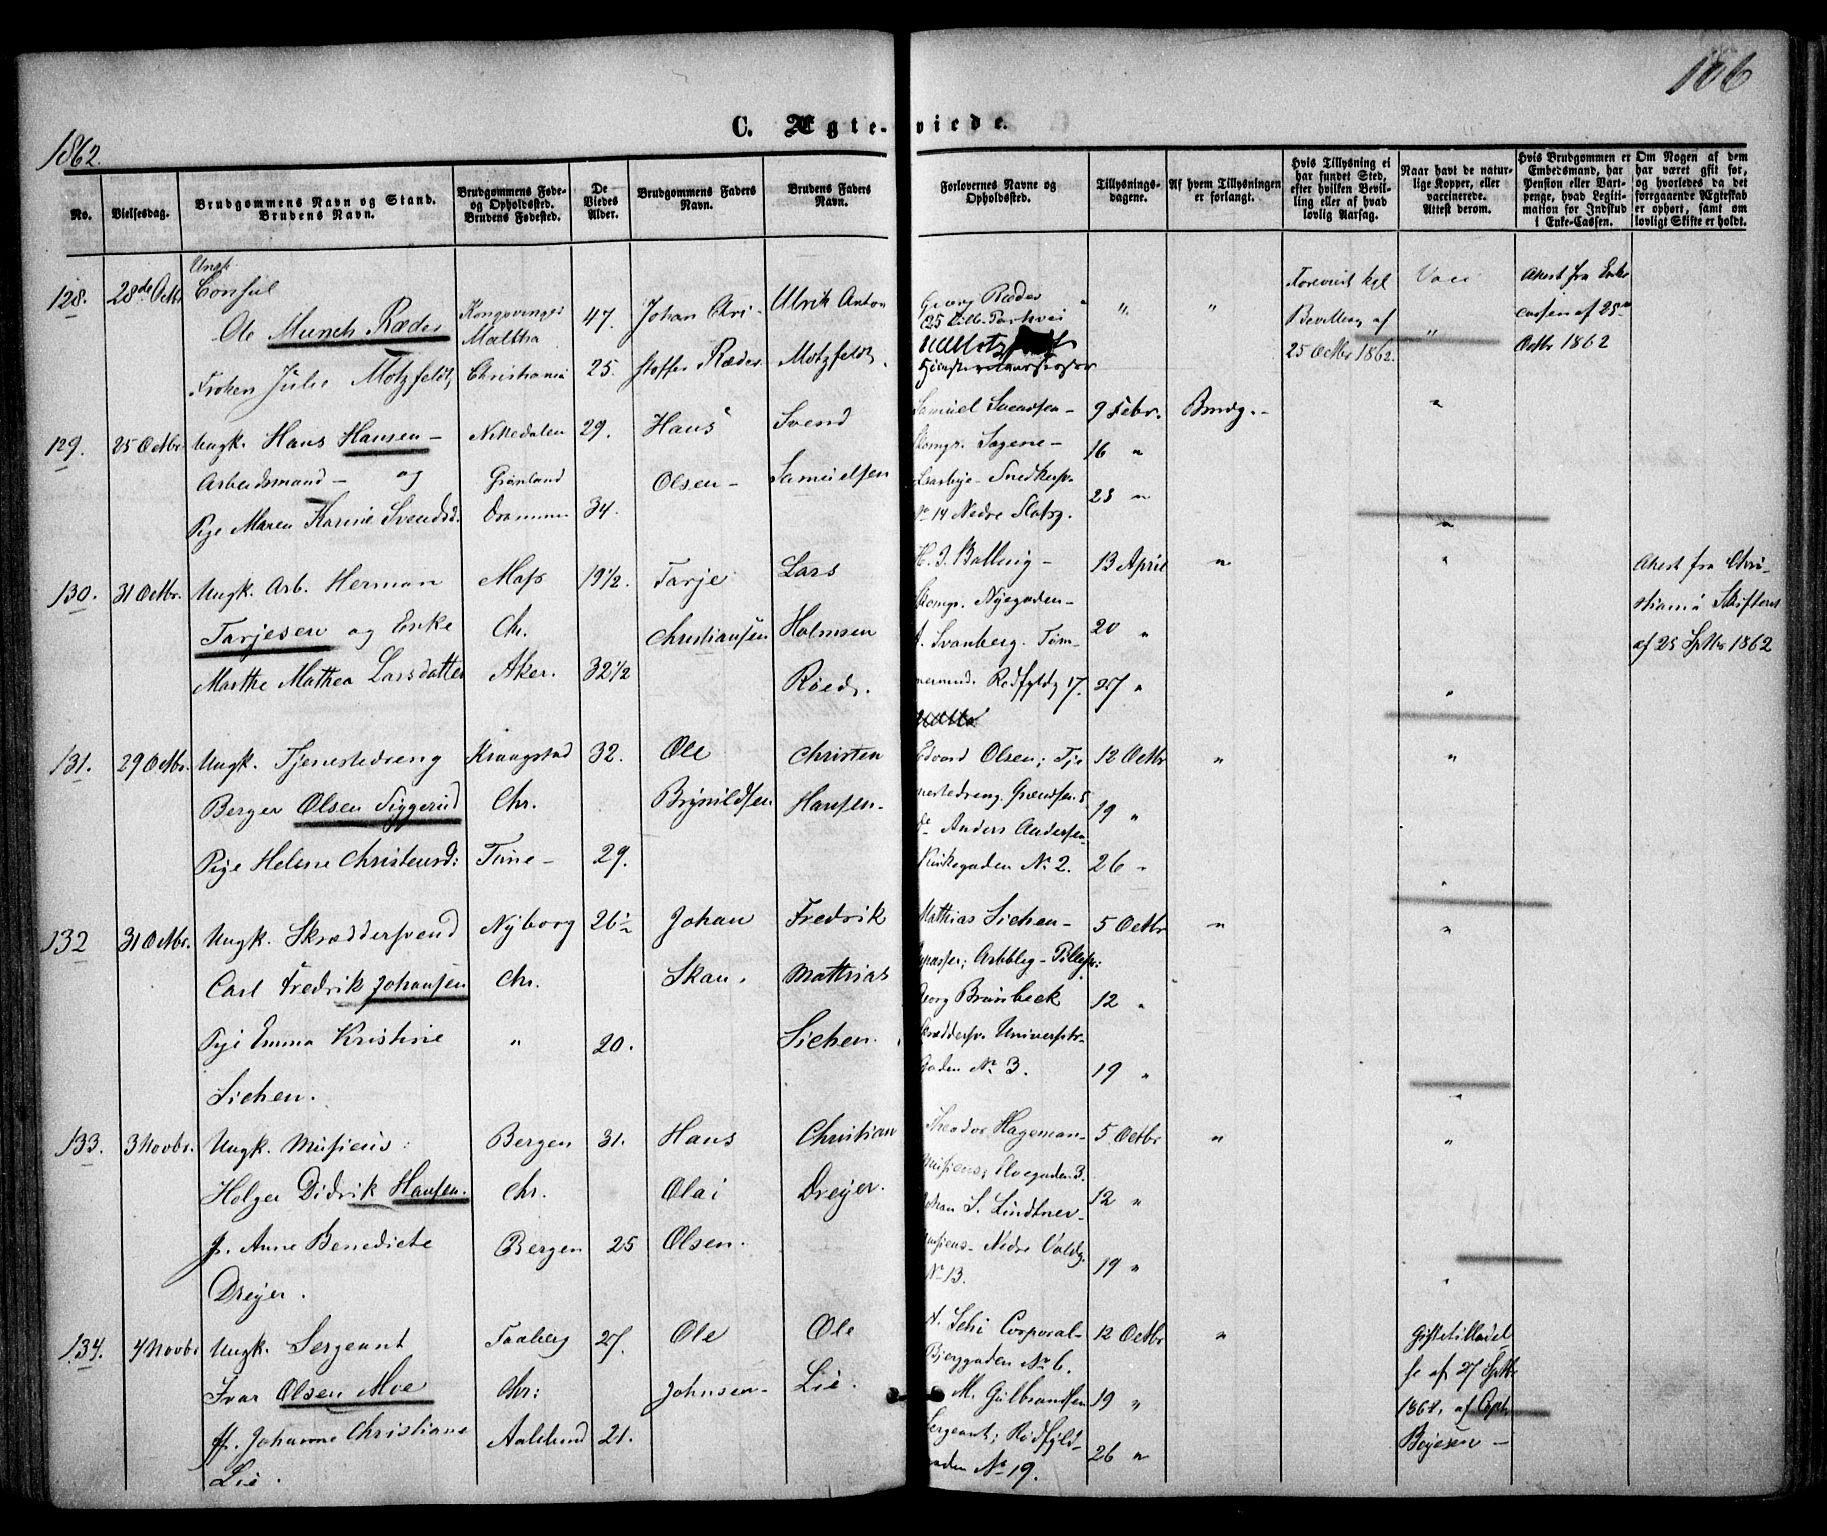 106
C. Ægte-viede.
1862.
No.
Vielsesdag.
Brudgommens Navn og Stand.
Brudens Navn.
Brudgommens Føde-
og Opholdssted.
Brudens Fødested.
De
Viedes
Alder.
Brudgommens Faders
Navn.
Brudens Faders
Navn.
Forlovernes Navne og
Opholdssted.
Tillysnings-
dagene.
Af hvem Tillysningen
er forlangt.
Hvis Tillysning ei
har fundet Sted,
efter hvilken Bevil-
ling eller af hvad
lovlig Aarsag.
Naar havt de natur-
lige Kopper, eller
vaccinerede.
Attest derom.
Hvis Brudgommen er
Embedsmand, har
Pension eller Vart-
penge, hvad Legiti-
mation for Indskud
i Enke-Cassen.
Om Nogen af dem
har været gift før,
og hvorledes da det
foregaaende Ægteskab
er ophørt, samt om
lovligt Skifte er holdt.
128. 28de Octbr Ungk. Consul Kongsvinger 47. Johan Chri- Ulrik Anton Georg Ræder " " Foreviist kgl Vacc Attest fra Enke
Ole Munch Ræder Maltha 25 Lille Parkvei Bevilling af cassen af 25de
Frøken Julie Motzfeldt Christiania 25. stoffer Ræder Motzfeldt. 25 Octbr 1862. " Octbr 1862
129. 25 Octbr. Ungk. Hans Hansen - Nittedalen 29. Hans Svend Samuel Svendsen - 9 Febr. Brudg. - "
Arbeidsmand - og Grønland Olsen - Samuelsen Sagene - 16 "
Pige Maren Karine Svendsd. Drammen 34. Snedkersv. 23 "
No 14 Nedre Slotsg. "
130. 31 Octbr. Ungk. Arb. Herman Moss 19 1/2. Tarje Lars H. J. Balling - 13 April " " Attest fra Chri-
Tarjesen og Enke Chr. Christiansen Holmsen Nyegaden - 20 " stiania Skifteret
Marthe Mathea Larsdatter Aker. 32 1/2 Røed. A. Svanberg. Tøm- af 25 Sptbr 1862
mermand. Rødfyldg 17. 27 " "
131. 29 Octbr. Ungk. Tjenestedreng Kraagstad 32. Ole Christen Edvard Olsen; Tje 12 Octbr " "
Berger Olsen Siggerud Chr. Brynildsen Hansen. nestedreng. Grændsen 5 19 "
Pige Helene Christensd: Tune - 29. Anders Andersen
Kirkegaden No 2. 26 " "
132 31 Octbr. Ungk. Skræddersvend Nyborg 26 1/2 Johan Fredrik Mathias Sichen - 5 Octbr " "
Carl Fredrik Johansen Chr. Skau. Mathias
Pige Emma Kristine " 20. Sichen. Georg Brunbeck 12 "
Sichen. Skræddersv. Universitets-
Gaden No 3. 19 " "
133. 3 Novbr. Ungk. Musicus: Bergen 31. Hans Christian Theodor Hageman - 5 Octbr " "
Holger Didrik Hansen. Chr. Olai Dreyer. Musicus; Elvegaden 3.
P. Anne Benedicte Bergen 25 Olsen. Johan S. Lindtner - 12 "
Dreyer. Musicus - Nedre Voldg.
No 13. 19 " "
134. 4 Novbr Ungk. Sergeant Faaberg 27. Ole Ole Corporal - 12 Octbr " Giftetilladel
Ivar Olsen Moe Chr: Johnsen - Lie. Bjerggaden No 6. se af 27 Sptbr
Johanne Christiane Aalesund 21. M. Gulbrandsen 19 " 1862, af Capt
Lie. Sergeant; Rødfyld- Bøyesen -
gaden No 19. 26 "